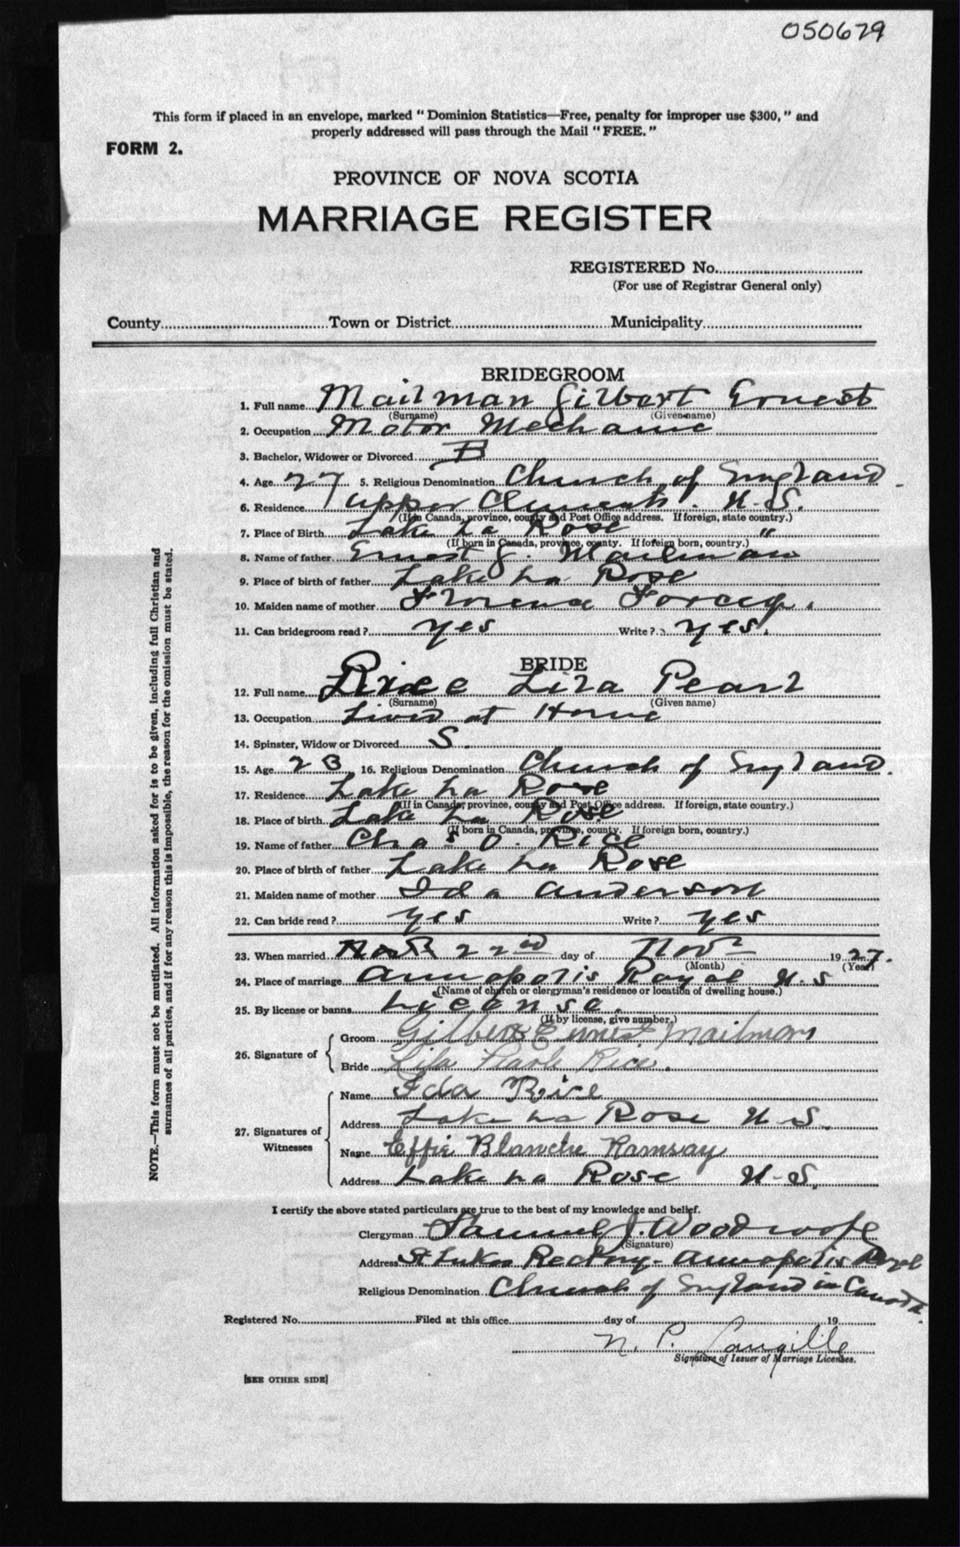 050679
This form if placed in an envelope, marked "Dominion Statistics—Free, penalty for improper use $300," and
properly addressed will pass through the Mail "FREE."
FORM 2.
PROVINCE OF NOVA SCOTIA
MARRIAGE REGISTER
REGISTERED No.
(For use of Registrar General only)
County Town or District Municipality
BRIDEGROOM
1. Full name Mailman Gilbert Ernest
(Surname) (Given name)
2. Occupation Motor Mechanic
3. Bachelor, Widower or Divorced B
4. Age 27 5. Religious Denomination Church of England
6. Residence Upper Clements. N.S.
(If in Canada, province, county and Post Office address. If foreign, state country.)
7. Place of Birth Lake La Rose "
(If born in Canada, province, county. If foreign born, country.)
8. Name of father Ernest J. Mailman
9. Place of birth of father Lake La Rose
10. Maiden name of mother Florence
11. Can bridegroom read? yes Write? yes
BRIDE
12. Full name Rice Liza Pearl
(Surname) (Given name)
13. Occupation Lives at Home
14. Spinster, Widow or Divorced S.
15. Age 23 16. Religious Denomination Church of England.
17. Residence Lake La Rose
(If in Canada, province, county and Post Office address. If foreign, state country.)
18. Place of birth Lake La Rose
(If born in Canada, province, county. If foreign born, country.)
19. Name of father Chas O. Rice
20. Place of birth of father Lake La Rose
21. Maiden name of mother Ida Anderson
22. Can bride read? yes Write? yes
23. When married 22nd day of Nov 1927.
(Month) (Year)
24. Place of marriage Annapolis Royal N.S
(Name of church or clergyman's residence or location of dwelling house.)
25. By license or banns Lycense.
(If by license, give number.)
26. Signature of Groom Gilbert Ernest Mailman
Bride Lila Pearle Rice.
27. Signatures of Witnesses Name Ida Rice
Address Lake La Rose N.S.
Name Effie Blanche Ramsay
Address Lake La Rose N.S.
I certify the above stated particulars are true to the best of my knowledge and belief.
Clergyman Samuel J. Woodroofe
(Signature)
Address St Lukes Rectory - Annapolis Royal
Religious Denomination Church of England in Canada.
Registered No. Filed at this office day of 19
N. P. Langille
Signature of Issuer of Marriage Licenses.
[SEE OTHER SIDE]
NOTE.—This form must not be mutilated. All information asked for is to be given, including full Christian and
surnames of all parties, and if for any reason this is impossible, the reason for the omission must be stated.